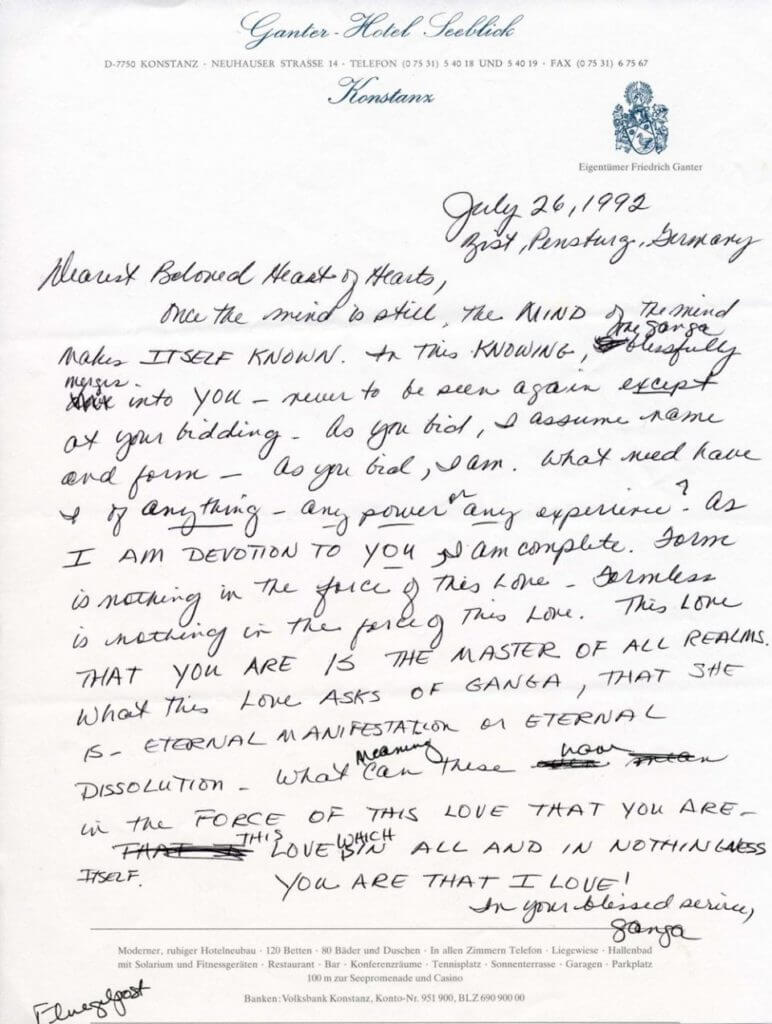 Ganter-Hotel Seeblick
D-7750 KONSTANZ · NEUHAUSER STRASSE 14 · TELEFON (0 75 31) 5 40 18 UND 5 40 19 · FAX (0 75 31) 6 75 67
Konstanz
Eigentümer Friedrich Ganter
July 26, 1992
Zist, Pensburg, Germany
Dearest Beloved Heart of Hearts,
Once the mind is still, the MIND of the mind
makes ITSELF KNOWN. In this KNOWING, the ganga blissfully
merges into YOU – never to be seen again except
at your bidding – As you bid, I assume name
and form – As you bid, I am. What need have
I of anything – any power or any experience? As
I AM DEVOTION TO YOU, I am complete. Form
is nothing in the force of this Love – Formless
is nothing in the force of This Love. This Love
THAT YOU ARE IS THE MASTER OF ALL REALMS.
What this Love ASKS OF GANGA, THAT SHE
IS – ETERNAL MANIFESTATION or ETERNAL
DISSOLUTION – What meaning can these have
in the FORCE OF THIS LOVE THAT YOU ARE –
THIS LOVE WHICH IS IN ALL AND IN NOTHINGNESS
ITSELF. YOU ARE THAT I LOVE!
In your blessed service,
ganga
Moderner, ruhiger Hotelneubau · 120 Betten · 80 Bäder und Duschen · In allen Zimmern Telefon · Liegewiese · Hallenbad
mit Solarium und Fitnessgeräten · Restaurant · Bar · Konferenzräume · Tennisplatz · Sonnenterrasse · Garagen · Parkplatz
100 m zur Seepromenade und Casino
Banken: Volksbank Konstanz, Konto-Nr. 951 900, BLZ 690 900 00